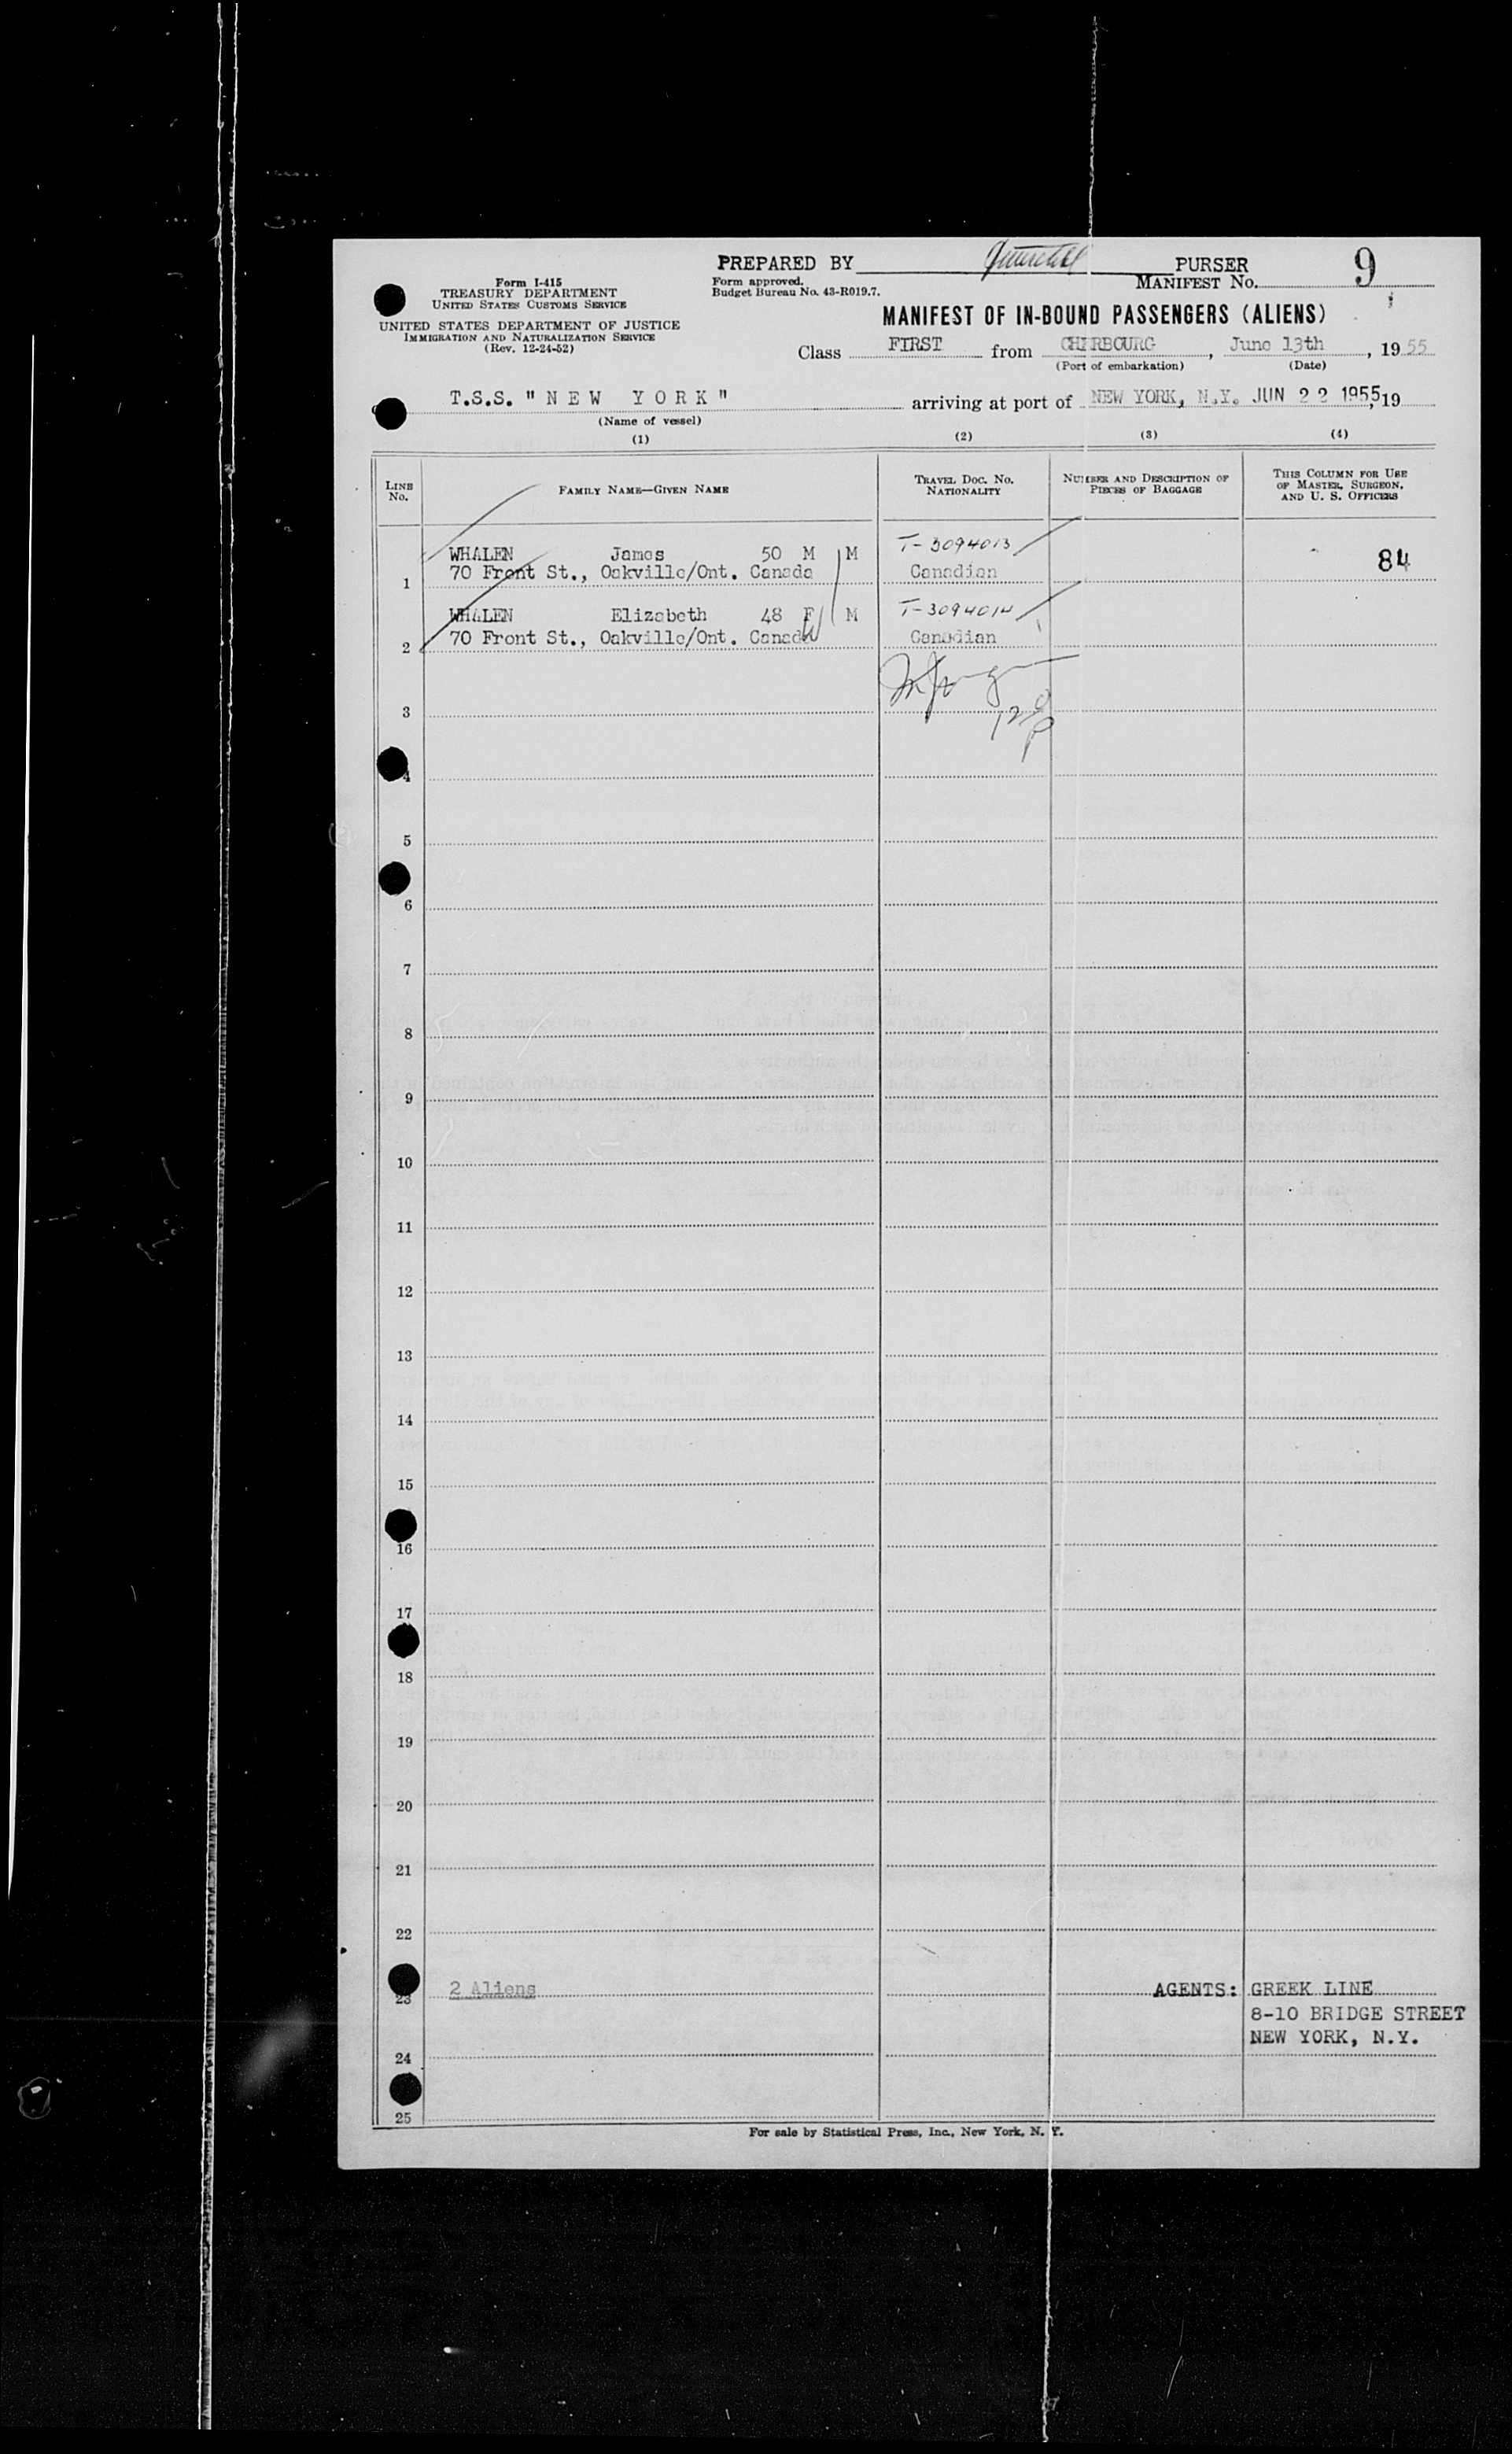 PREPARED BY PURSER
Form I-415
TREASURY DEPARTMENT
UNITED STATES CUSTOMS SERVICE
UNITED STATES DEPARTMENT OF JUSTICE
IMMIGRATION AND NATURALIZATION SERVICE
(Rev. 12-24-52)
Form approved.
Budget Bureau No. 43-R019.7.
MANIFEST NO. 9
MANIFEST OF IN-BOUND PASSENGERS (ALIENS)
Class FIRST from CHERBOURG, June 13th, 1955
(Port of embarkation) (Date)
T.S.S. "NEW YORK" arriving at port of NEW YORK, N.Y. JUN 22 1955, 19
(Name of vessel)
(1) (2) (3) (4)
LINE NO. FAMILY NAME—GIVEN NAME TRAVEL DOC. NO. NATIONALITY NUMBER AND DESCRIPTION OF PIECES OF BAGGAGE THIS COLUMN FOR USE OF MASTER, SURGEON, AND U. S. OFFICERS
WHALEN James 50 M M T-3094013 84
1 70 Front St., Oakville/Ont. Canada Canadian
WHALEN Elizabeth 48 F M T-3094014
2 70 Front St., Oakville/Ont. Canada Canadian
3
4
5
6
7
8
9
10
11
12
13
14
15
16
17
18
19
20
21
22
23 2 Aliens AGENTS: GREEK LINE
8-10 BRIDGE STREET
NEW YORK, N.Y.
24
25
For sale by Statistical Press, Inc., New York, N. Y.